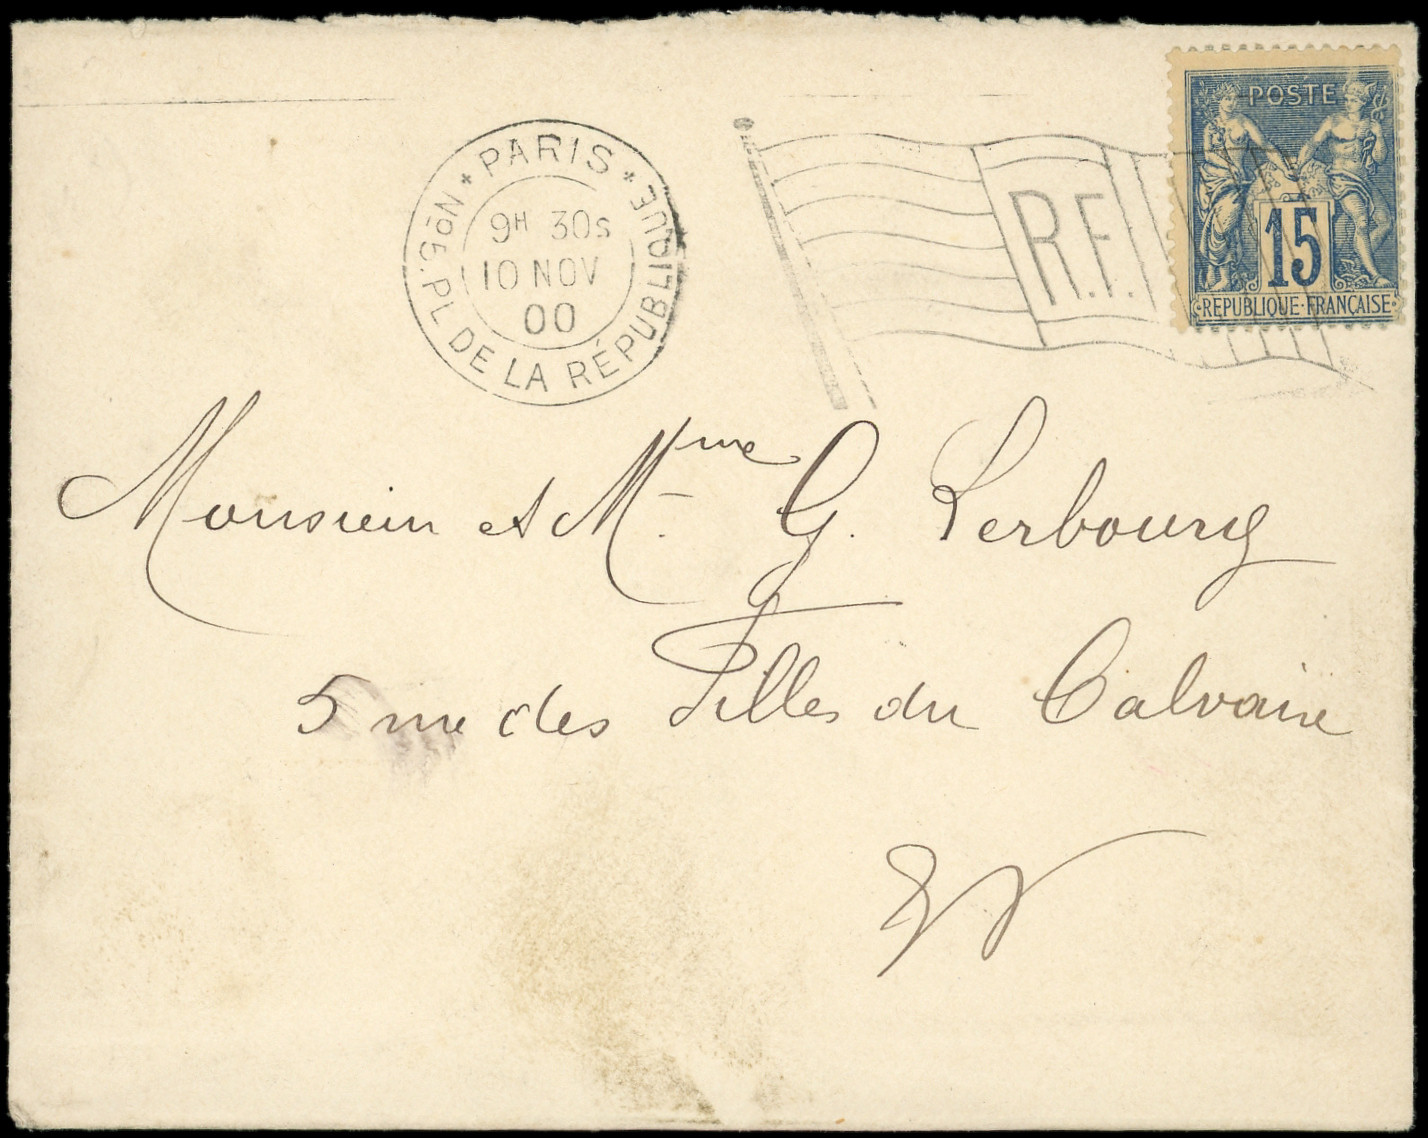 PARIS
No5. PL. DE LA RÉPUBLIQUE
9H 30S
10 NOV
00
R.F.
POSTE
15
REPUBLIQUE·FRANÇAISE
Monsieur et Mme G. Lerbourg
5 rue des Filles du Calvaire
EV